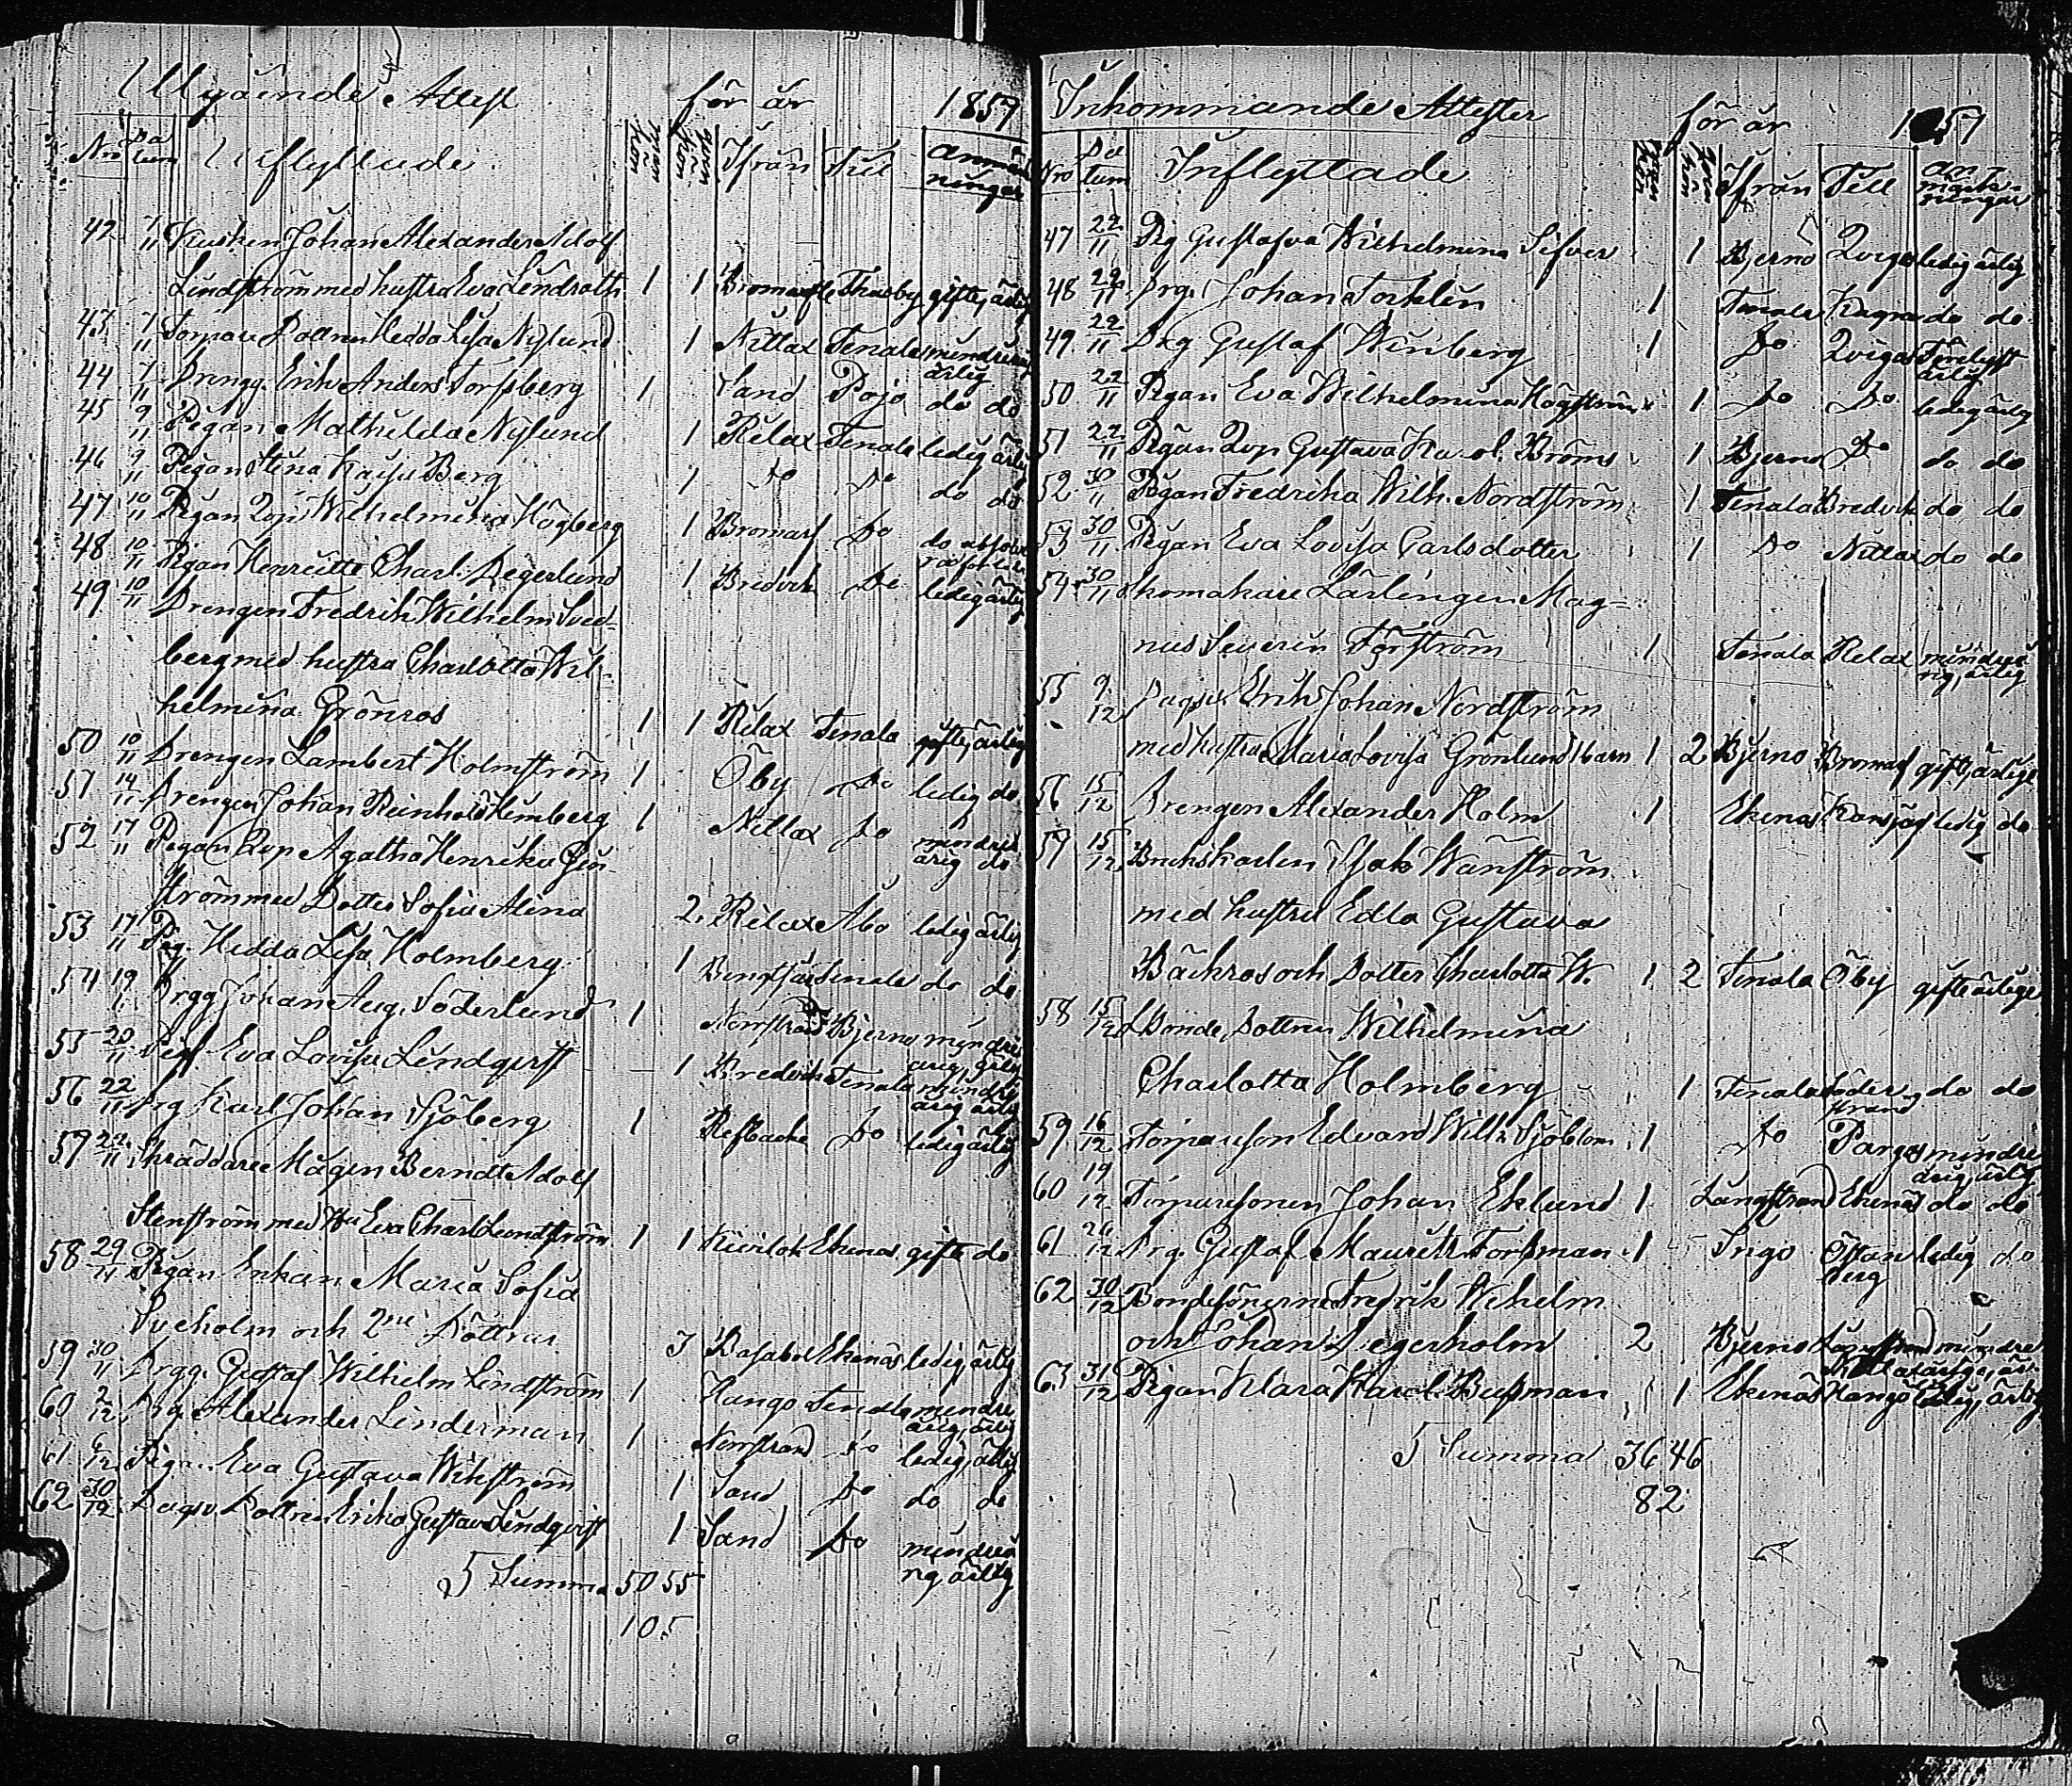 Utgående Attest för år 1857
Nro Da tum Utflyttade man kön qvin kön Ifrån Till anmärk ningar
42 7/11 Kusken Johan Alexander Adolf
Lindström med hustra Eva Lindroth 1 1 Bromarf gifte, ärlig
43 7/11 Torpare Dottren Hedda Lisa Nylund 1 Nittlax Tenala mindreårig
ärlig
44 7/11 Drengg. Erik Anders Forssberg 1 Sand Pojo do do
45 9/11 Pigan Mathilda Nylund 1 Rilax Tenala ledig ärlig
46 9/11 Pigan Stina Kajsa Berg 1 Do Do do do
47 10/11 Pigan Qvp Wilhelmina Högberg 1 Bromarf Do do
48 10/11 Pigan Henriette Charl. Degerlund 1 Bredvik Do ledig ärlig
49 10/11 Drengen Fredrik Wilhelm Sved-
berg med hustra Charlotta Wil-
helmina Grönros 1 1 Rilax Tenala gifte, ärlig
50 10/11 Drengen Lambert Holmström 1 Öby Do ledig do
51 14/11 Drengen Johan Reinhold Himberg 1 Nittlax Do mindre
årig do
52 17/11 Pigan Qvp Agatha Henrika
ström med Dotter Sofia Alina 2 Rilax Åbo ledig ärlig
53 17/11 Pig. Hedda Lisa Holmberg 1 Tenala do do
54 19/11 Drgg Johan Aug. Söderlund 1 Norrstrand Bjerno mindre
årig, ärlig
55 20/11 Pig. Eva Lovisa Lindqvist 1 Bredvik Tenala mindre
årig ärlig
56 22/11 Drg Karl Johan Sjöberg 1 Refbacka Do ledig ärlig
57 22/11 Skräddare Mågen Berndt Adolf
Stenström med Hu Eva Charl Lundström 1 1 Ekenäs gifte do
58 29/11 Pigan Enkan Maria Sofia
Sveholm och 2ne Döttrar 3 Basaböl Ekenäs ledig ärlig
59 30/11 Drgg. Gustaf Wilhelm Lindström 1 Hango Tenala mindre
årig, ärlig
60 2/12 Drg. Alexander Linderman 1 Norrstrand Do ledig, ärlig
61 6/12 Pigan Eva Gustava Wikström 1 Sand Do do do
62 30/12 Dagsv. Dottren Erika Gustava Lindqvist 1 Sand Do mindreå
rig ärlig
Summa 50 55
105
Inkommande Attester för år 1857
Nro Da tum Inflyttade man kön qvin kön Ifrån Till an märk- ningar
47 22/11 Pig Gustafva Wilhelmina Silfver 1 Bjerno Qvigos ledig ärlig
48 22/11 Drg. Johan Torkelin 1 Tenala do do
49 22/11 Drg Gustaf Winberg 1 Do Qvigos
ärlig
50 22/11 Pigan Eva Wilhelmina Högström 1 Do Do ledig ärlig
51 22/11 Pigan Qvp Gustava Karol. Broms 1 Bjerno Do do do
52 30/11 Pigan Fredrika Wilh. Nordström 1 Tenala Bredvik do do
53 30/11 Pigan Eva Lovisa Carlsdotter 1 Do Nittlax do do
54 30/11 Skomakare Lärlingen Mag-
nus Severin Forström 1 Tenala Rilax mindreå
rig, ärlig
55 9/12 Dagsv. Erik Johan Nordström
med hustra Maria Lovisa Grönlund 1 barn 1 2 Bjerno Bromarf gifte, ärlige
56 15/12 Drengen Alexander Holm 1 Ekenäs Kansjärf ledig do
57 15/12 Brukskarlen Isak Wanström
med hustru Edla Gustava
Bäckros och Dotter Charlotta W. 1 2 Tenala Öby gifte ärlige
58 15/12 Bonde Dottren Wilhelmina
Charlotta Holmberg 1 Tenala Söder do do
strand
59 16/12 Torparson Edvard Wilh. Sjöblom 1 Do Pargas mindre
årig, ärlig
60 19/12 Torparesonen Johan Eklund 1 Långstrand Ekenäs do do
61 26/12 Drg. Gustaf Mauritz Forsman 1 Ingo Östan ledig do
berg
62 30/12 Bondesönerna Fredrik Wilhelm
och Johan Legerholm 2 Bjerno mindre
63 31/12 Pigan Klara Karol. Bussman 1 Ekenäs Hangö ledig, ärlig
Summa 36 46
82